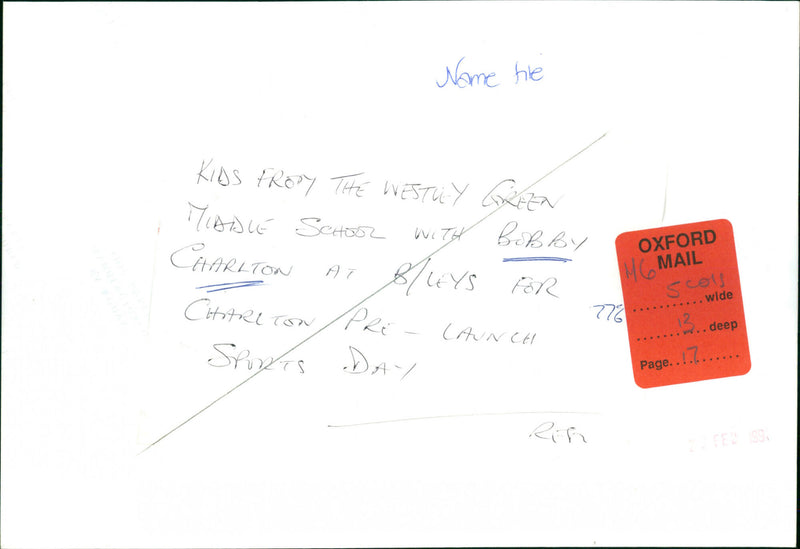 Name file
KIDS FROM THE WESTLEY GREEN
MIDDLE SCHOOL WITH BOBBY
CHARLTON AT B/LEYS FOR
CHARLTON PRE-LAUNCH
SPORTS DAY
OXFORD
MAIL
H6
5 cols
..........wide
776
13
..........deep
Page....17..........
FEB